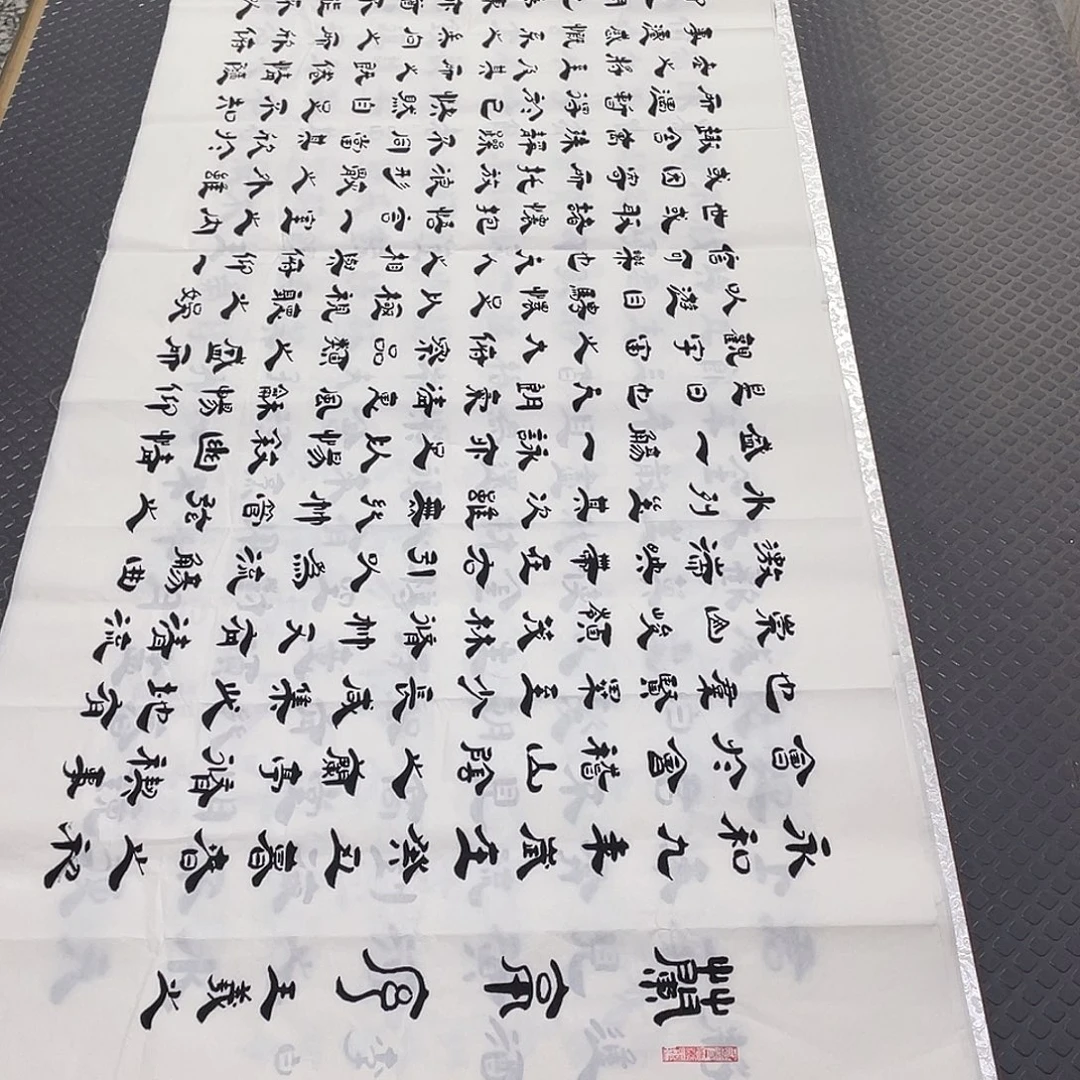 蘭亭序 王羲之
永和九年歲在癸丑暮春之初
會於會稽山陰之蘭亭脩禊事
也羣賢畢至少長咸集此地有
崇山峻領茂林脩竹又有清流
激湍映帶左右引以為流觴曲
水列坐其次雖無絲竹管弦之
盛一觴一詠亦足以暢敘幽情
是日也天朗氣清惠風和暢仰
觀宇宙之大俯察品類之盛所
以遊目騁懷足以極視聽之娛
信可樂也夫人之相與俯仰一
世或取諸懷抱悟言一室之內
或因寄所托放浪形骸之外雖
趣舍萬殊靜躁不同當其欣於
所遇暫得於己快然自足不知
老之將至及其所之既倦情隨
事遷感慨係之矣向之所欣俛